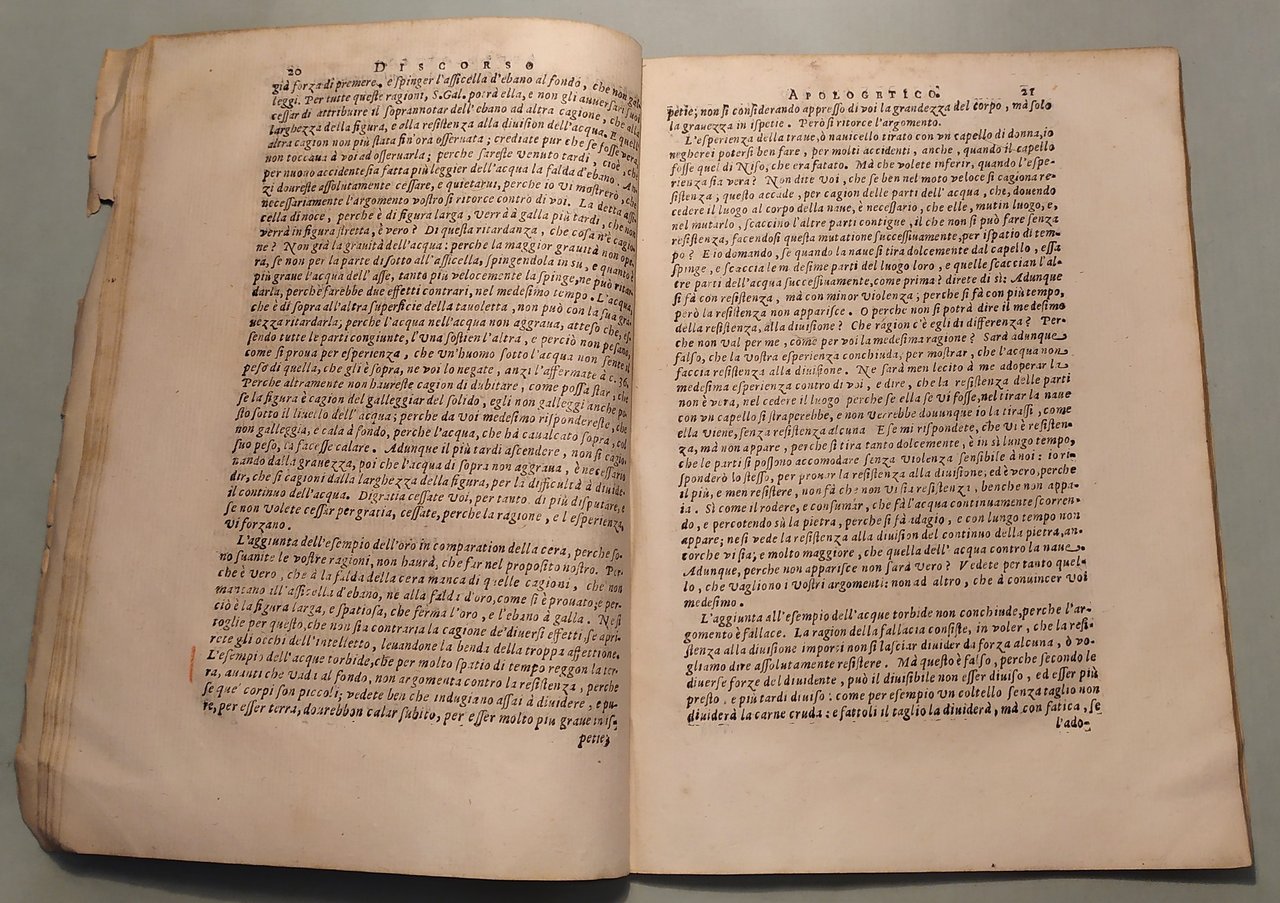 20 DISCORSO
già forza di premere, e spinger l'assicella d'ebano al fondo, che non gal-
leggi. Per tutte queste ragioni, S.Gal. potrà ella, e non gli auuersari suoi
cessar di attribuire il soprannotar dell'ebano ad altra cagione, che alla
larghezza della figura, e alla resistenza alla diuision dell'acqua. E quell'
altra cagion non più stata fin'ora osseruata; crediate pur che se fosse vera,
non toccaua à voi ad osseruarla; perche sareste venuto tardi, cioè, che
per nuouo accidente sia fatta più leggier dell'acqua la falda d'ebano. An-
zi doureste assolutamente cessare, e quietarui, perche io vi mostrerò, che
necessariamente l'argomento vostro si ritorce contro di voi. La detta assi-
cella di noce, perche è di figura larga, verrà à galla più tardi, che non
verrà in figura stretta, è vero? Di questa ritardanza, che cosa n'è cagio-
ne? Non già la grauità dell'acqua: perche la maggior grauità non ope-
ra, se non per la parte di sotto all'assicella, spingendola in su, e quanto è
più graue l'acqua dell'asse, tanto più velocemente la spinge, ne può ritar-
darla, perche farebbe due effetti contrari, nel medesimo tempo. L'acqua,
che è di sopra all'altra superficie della tauoletta, non può con la sua gra-
uezza ritardarla; perche l'acqua nell'acqua non aggraua, atteso che, es-
sendo tutte le parti congiunte, l'una sostien l'altra, e perciò non pesano,
come si proua per esperienza, che un'huomo sotto l'acqua non sente il
peso di quella, che gli è sopra, ne voi lo negate, anzi l'affermate à c. 36.
Perche altramente non haureste cagion di dubitare, come possa star, che
se la figura è cagion del galleggiar del solido, egli non galleggi anche po-
sto sotto il liuello dell'acqua; perche da voi medesimo rispondereste, che
non galleggia, e cala à fondo, perche l'acqua, che hà caualcato sopra, col
suo peso, la facesse calare. Adunque il più tardi ascendere, non si cagio-
nando dalla grauezza, poi che l'acqua di sopra non aggraua, è necessario
dir, che si cagioni dalla larghezza della figura, per la difficultà à diuide-
il continuo dell'acqua. Digratia cessate voi, per tanto, di più disputare, e
se non volete cessar per gratia, cessate, perche la ragione, e l'esperienza,
vi forzano.
L'aggiunta dell'esempio dell'oro in comparation della cera, perche so-
no suanite le vostre ragioni, non haurà, che far nel proposito nostro. Per-
che è vero, che à la falda della cera manca di quelle cagioni, che non
mancano all'assicella d'ebano, ne alla falda d'oro, come si è prouato; e per-
ciò è la figura larga, e spatiosa, che ferma l'oro, e l'ebano à galla. Ne si
toglie per questo, che non sia contraria la cagione de' diuersi effetti, se apri-
rete gli occhi dell'intelletto, leuandone la benda della troppa affettione.
L'esempio dell'acque torbide, che per molto spatio di tempo reggon la ter-
ra, auanti che vadi al fondo, non argomenta contro la resistenza, perche
se que' corpi son piccoli; vedete ben che indugiano assai à diuidere, e pu-
re, per esser terra, dourebbon calar subito, per esser molto piu graue in is-
petie;
APOLOGETICO. 21
petie; non si considerando appresso di voi la grandezza del corpo, mà solo
la grauezza in ispetie. Però si ritorce l'argomento.
L'esperienza della traue, ò nauicello tirato con vn capello di donna, io
negherei potersi ben fare, per molti accidenti, anche, quando il capello
fosse quel di Niso, che era fatato. Mà che volete inferir, quando l'espe-
rienza sia vera? Non dite voi, che se ben nel moto veloce si cagiona re-
sistenza; questo accade, per cagion delle parti dell'acqua, che, douendo
cedere il luogo al corpo della naue, è necessario, che elle, mutin luogo, e,
nel mutarlo, scaccino l'altre parti contigue, il che non si può fare senza
resistenza, facendosi questa mutatione successiuamente, per ispatio di tem-
po? E io domando, se quando la naue si tira dolcemente dal capello, essa
spinge, e scaccia le medesime parti del luogo loro, e quelle scaccian l'al-
tre parti dell'acqua successiuamente, come prima? direte di sì: Adunque
si fà con resistenza, mà con minor violenza; perche si fà con più tempo,
però la resistenza non apparisce. O perche non si potrà dire il medesimo
della resistenza, alla diuisione? Che ragion c'è egli di differenza? Per-
che non val per me, come per voi la medesima ragione? Sarà adunque
falso, che la vostra esperienza conchiuda, per mostrar, che l'acqua non
faccia resistenza alla diuisione. Ne sarà men lecito à me adoperar la
medesima esperienza contro di voi, e dire, che la resistenza delle parti
non è vera, nel cedere il luogo perche se ella se vi fosse, nel tirar la naue
con vn capello si straperebbe, e non verrebbe dounque io la tirassi, come
ella viene, senza resistenza alcuna E se mi rispondete, che vi è resisten-
za, ma non appare, perche si tira tanto dolcemente, è in sù lungo tempo,
che le parti si possono accomodare senza violenza sensibile à noi: io ri-
sponderò lo stesso, per prouar la resistenza alla diuisione, ed è vero, perche
il più, e men resistere, non fà che non vi sia resistenza, benche non appa-
ia. Sì come il rodere, e consumàr, che fà l'acqua continuamente scorren-
do, e percotendo sù la pietra, perche si fà adagio, e con lungo tempo non
appare; ne si vede la resistenza alla diuision del continuo della pietra, an-
corche vi sia; e molto maggiore, che quella dell'acqua contro la naue.
Adunque, perche non apparisce non sarà vero? Vedete per tanto quel-
lo, che vagliono i vostri argomenti: non ad altro, che à conuincer voi
medesimo.
L'aggiunta all'esempio dell'acque torbide non conchiude, perche l'ar-
gomento è fallace. La ragion della fallacia consiste, in voler, che la resi-
stenza alla diuisione importi non si lasciar diuider da forza alcuna, ò vo-
gliamo dire assolutamente resistere. Mà questo è falso, perche secondo le
diuerse forze del diuidente, può il diuisibile non esser diuiso, ed esser più
presto, e più tardi diuiso: come per esempio un coltello senza taglio non
diuiderà la carne cruda: e fattoli il taglio la diuiderà, mà con fatica, se
l'ado-